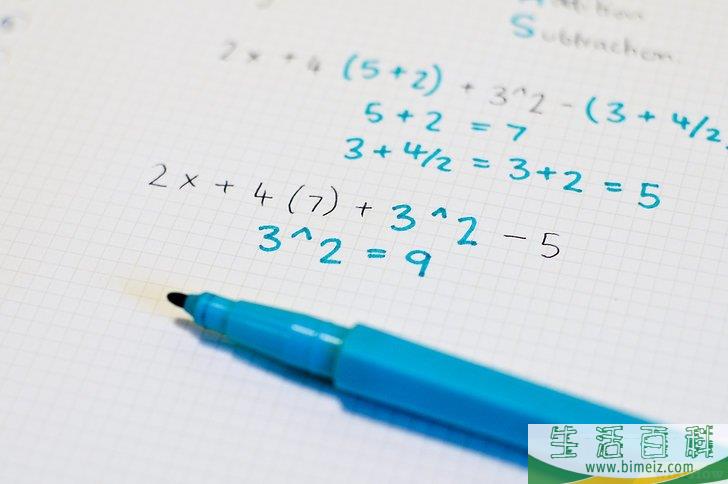 Subtraction
2x + 4 (5+2) + 3^2 - (3 + 4/2
5 + 2 = 7
3 + 4/2 = 3+2 = 5
2x + 4 (7) + 3^2 - 5
3^2 = 9
生活百科
www.bimeiz.com